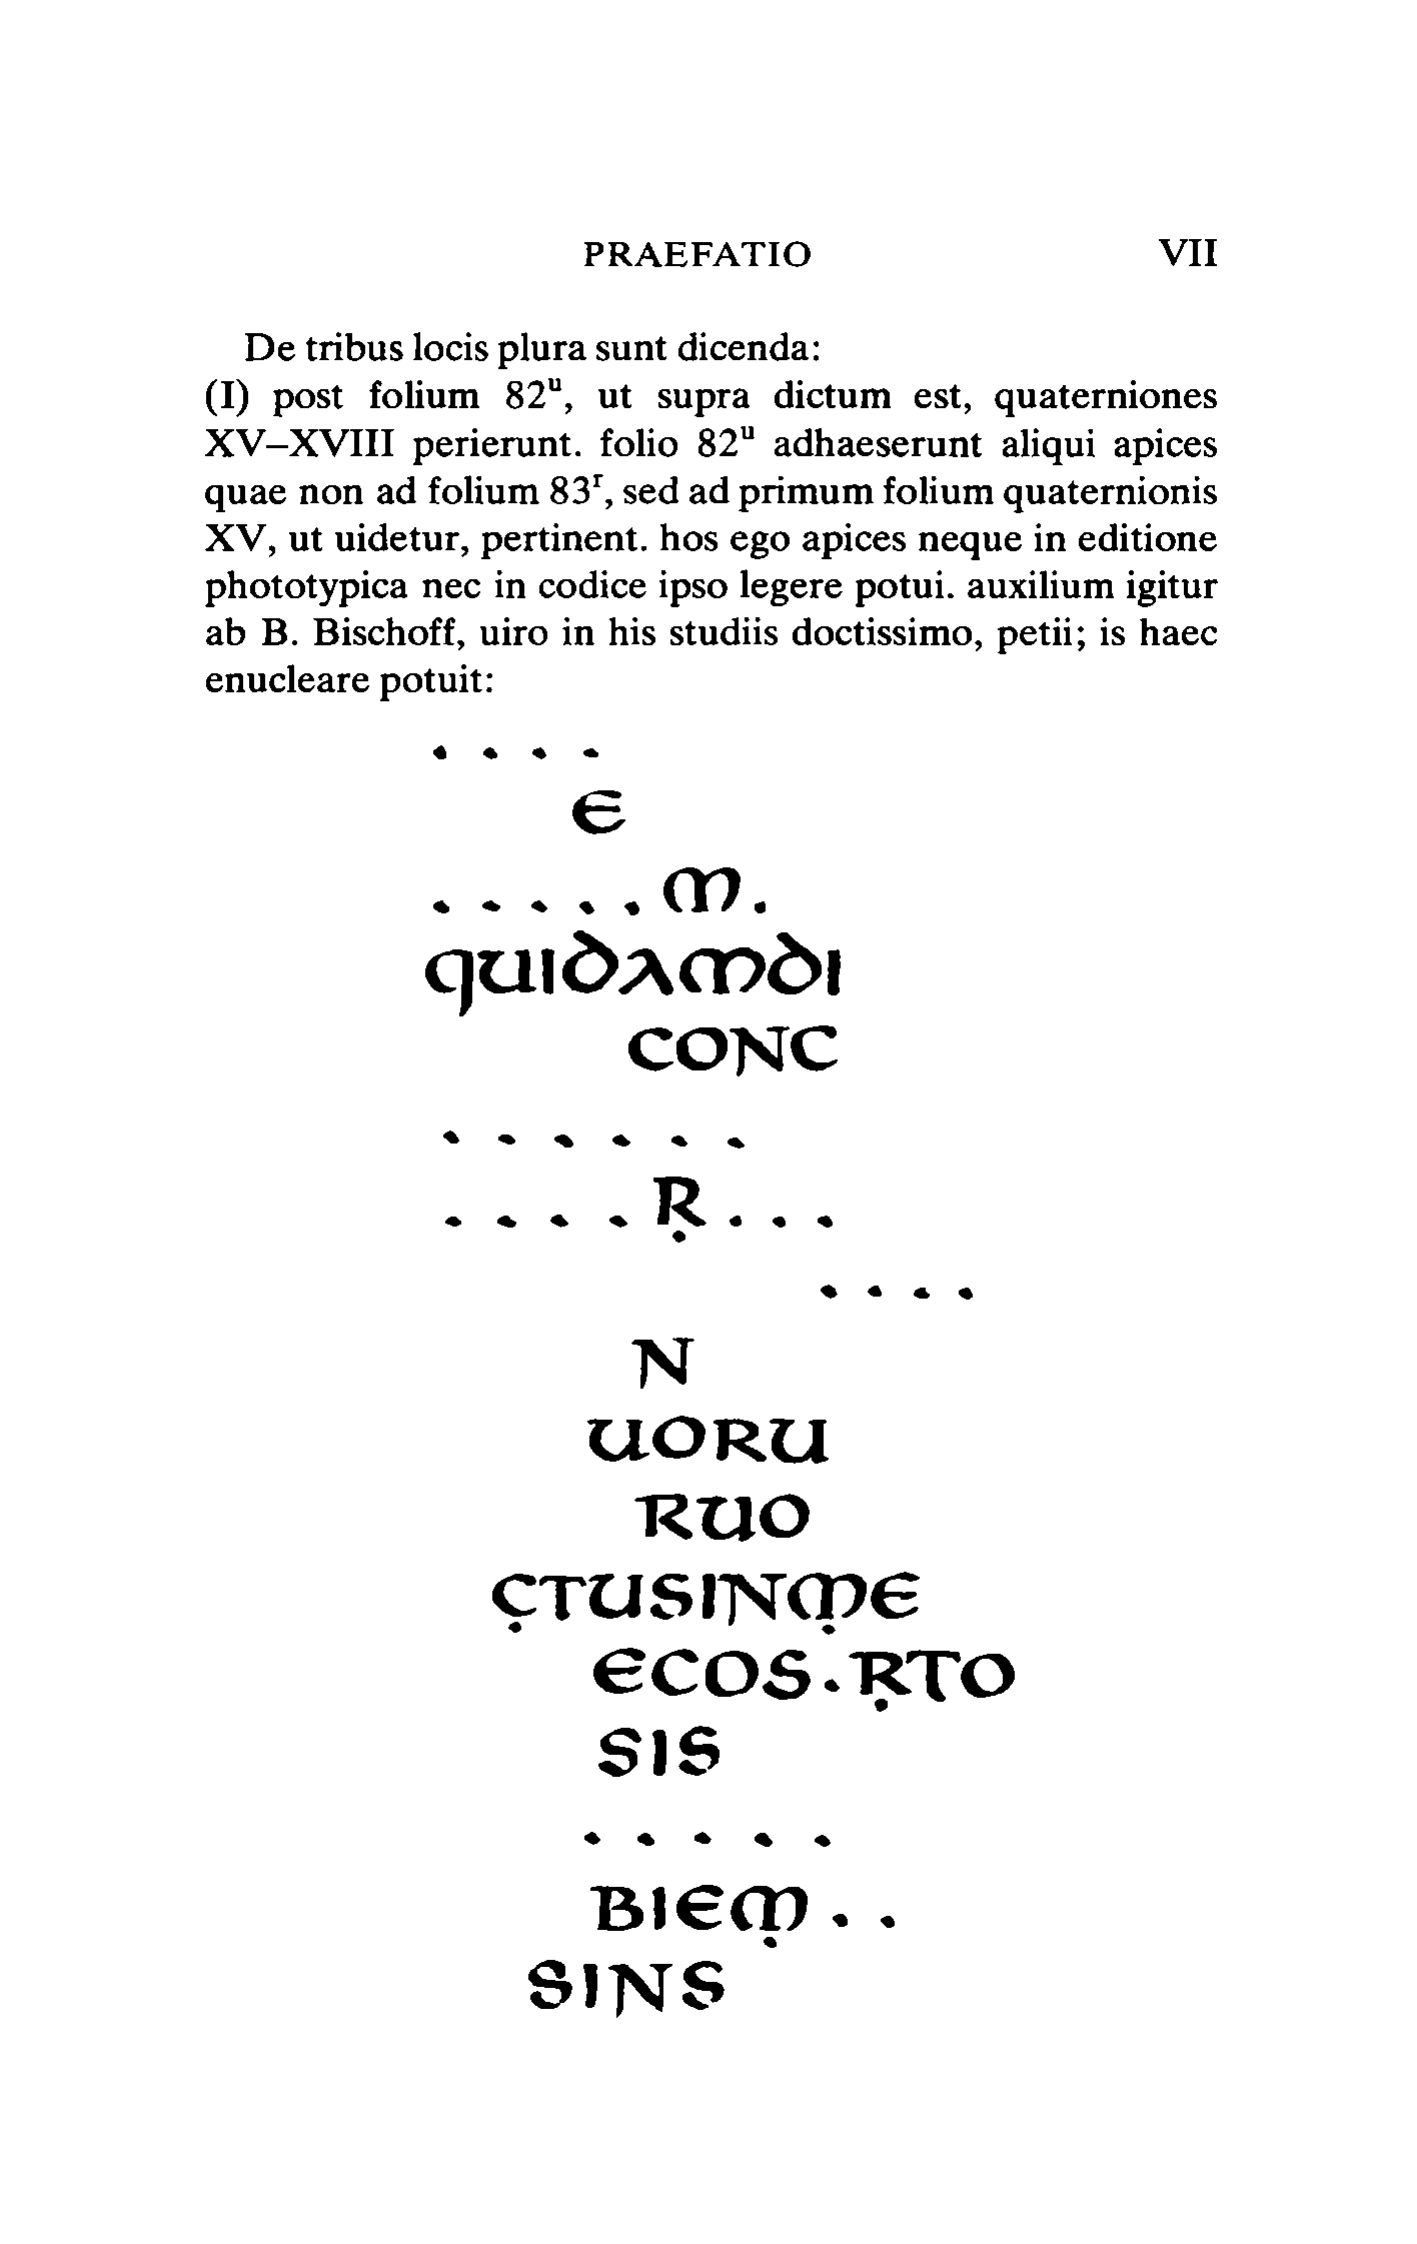 PRAEFATIO VII
De tribus locis plura sunt dicenda:
(I) post folium 82ᵘ, ut supra dictum est, quaterniones
XV–XVIII perierunt. folio 82ᵘ adhaeserunt aliqui apices
quae non ad folium 83ʳ, sed ad primum folium quaternionis
XV, ut uidetur, pertinent. hos ego apices neque in editione
phototypica nec in codice ipso legere potui. auxilium igitur
ab B. Bischoff, uiro in his studiis doctissimo, petii; is haec
enucleare potuit:
. . . .
E
. . . . . M .
QUIDAMDI
CONC
. . . . . .
. . . . Ṛ . . .
. . . .
N
UORU
RUO
C̣TUSINṂE
ECOS . ṚTO
SIS
. . . . .
BIEṂ . .
SINS